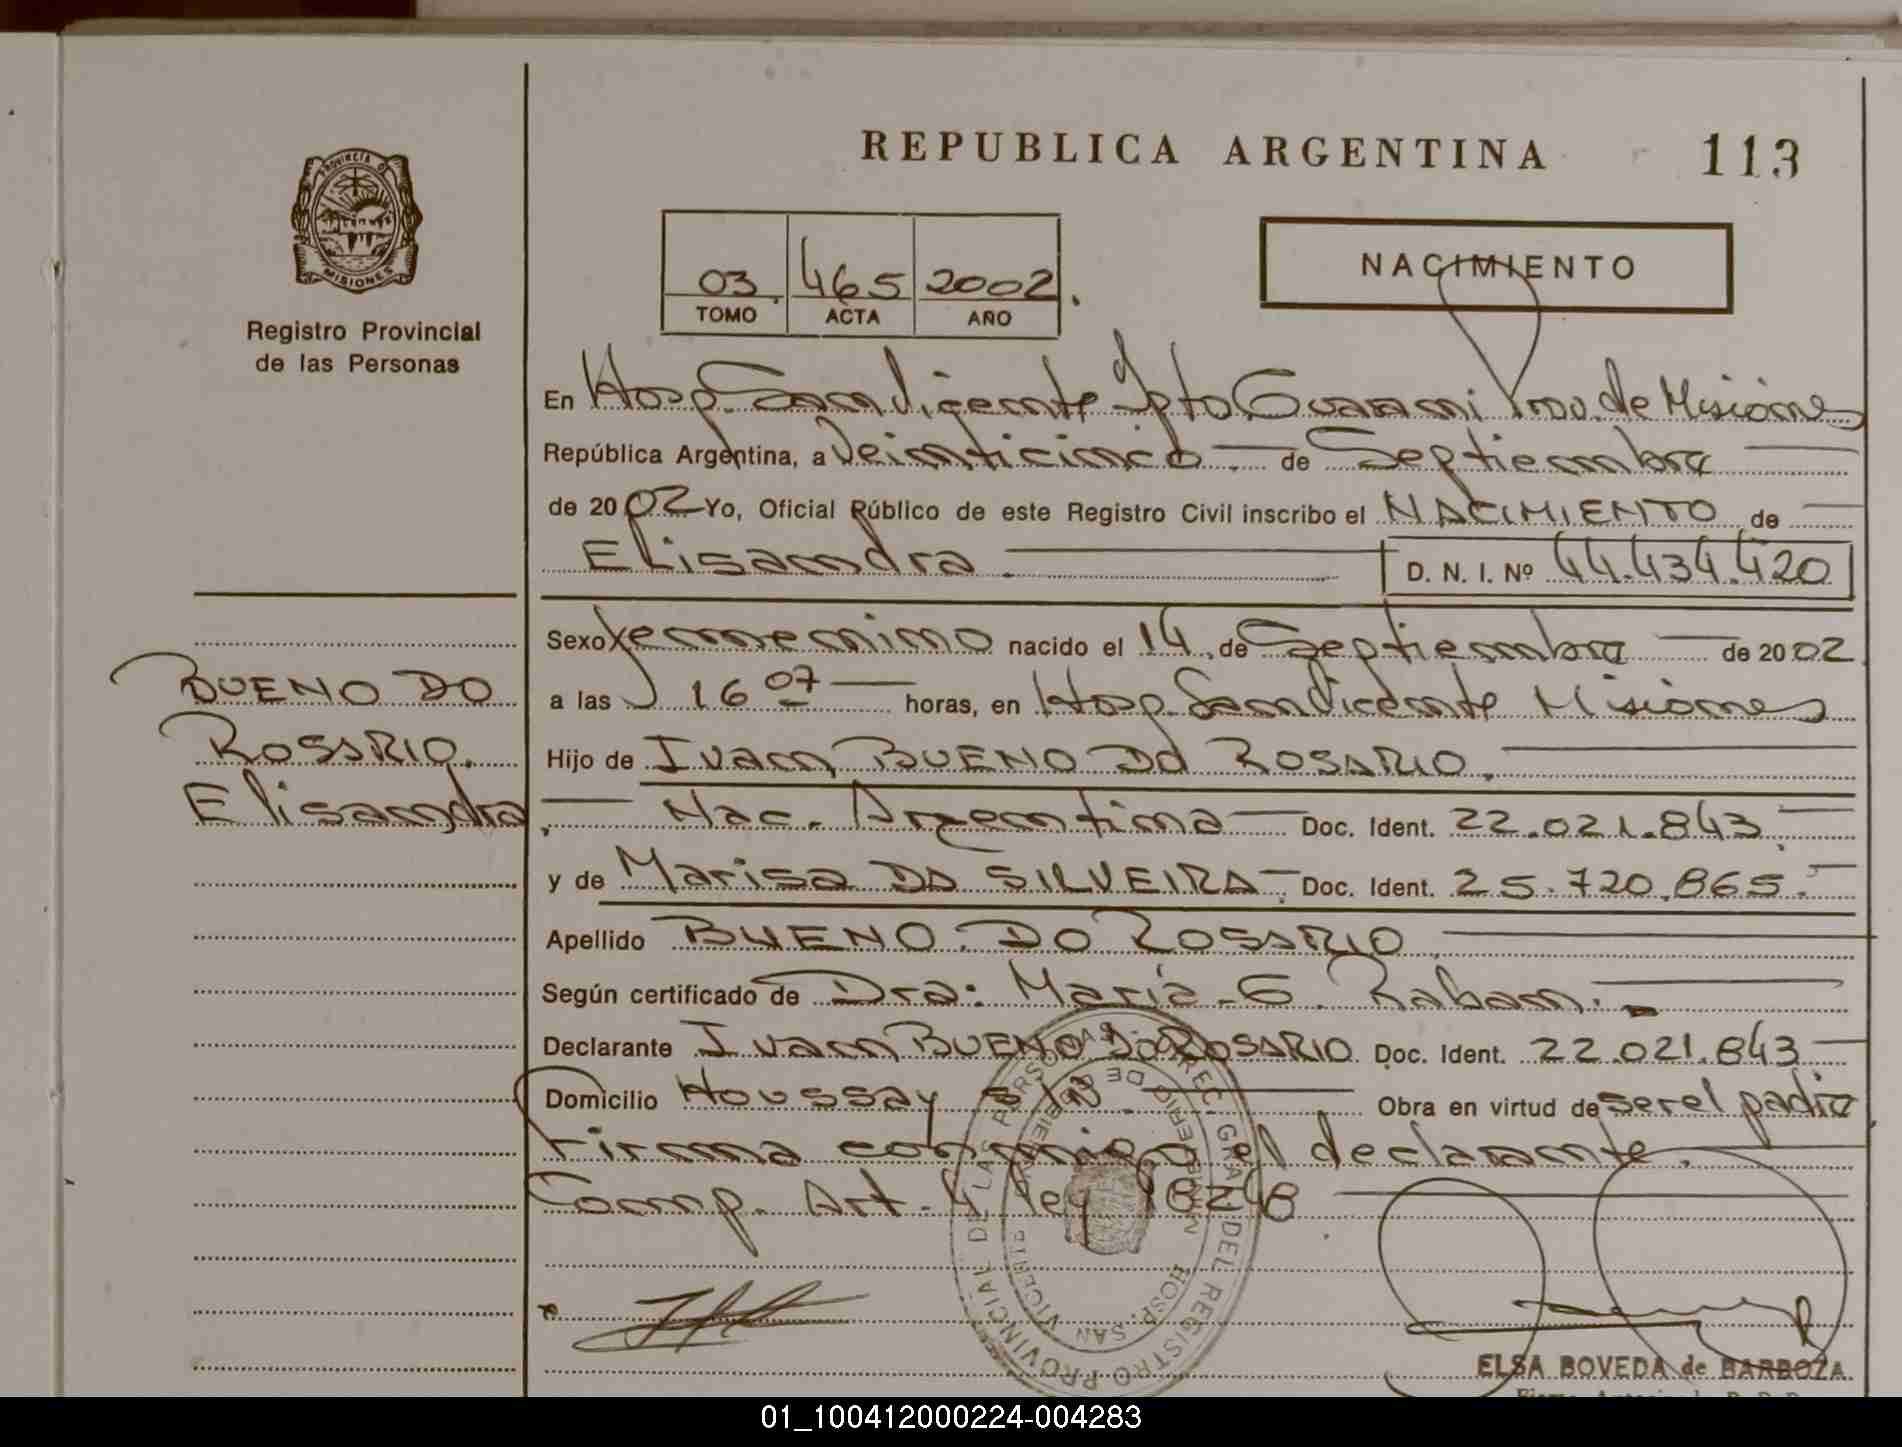 REPUBLICA ARGENTINA 113
PROVINCIA DE
MISIONES
Registro Provincial
de las Personas
03 465 2002
TOMO ACTA AÑO
NACIMIENTO
En Hosp. San Vicente Dpto Guarani Prov. de Misiones
República Argentina, a Veinticinco de Septiembre
de 2002 Yo, Oficial Público de este Registro Civil inscribo el NACIMIENTO de
Elisandra D. N. I. Nº 44.434.420
Sexo Femenino nacido el 14 de Septiembre de 2002
a las 16 07 horas, en Hosp. San Vicente Misiones
Hijo de Ivan BUENO DO ROSARIO.
Nac. Argentina Doc. Ident. 22.021.843
y de Marisa DA SILVEIRA Doc. Ident. 25.720.865.
Apellido BUENO DO ROSARIO
Según certificado de Dra: Maria G. Raban.
Declarante Ivan BUENO DO ROSARIO Doc. Ident. 22.021.843
Domicilio Houssay s/N. Obra en virtud de ser el padre
Firma conmigo el declarante.
Comp. Art. 4 ley 18248
BUENO DO
ROSARIO.
Elisandra
DEL REGISTRO PROVINCIAL DE LAS PERSONAS
HOSP. SAN VICENTE
ELSA BOVEDA de BARBOZA
01_100412000224-004283